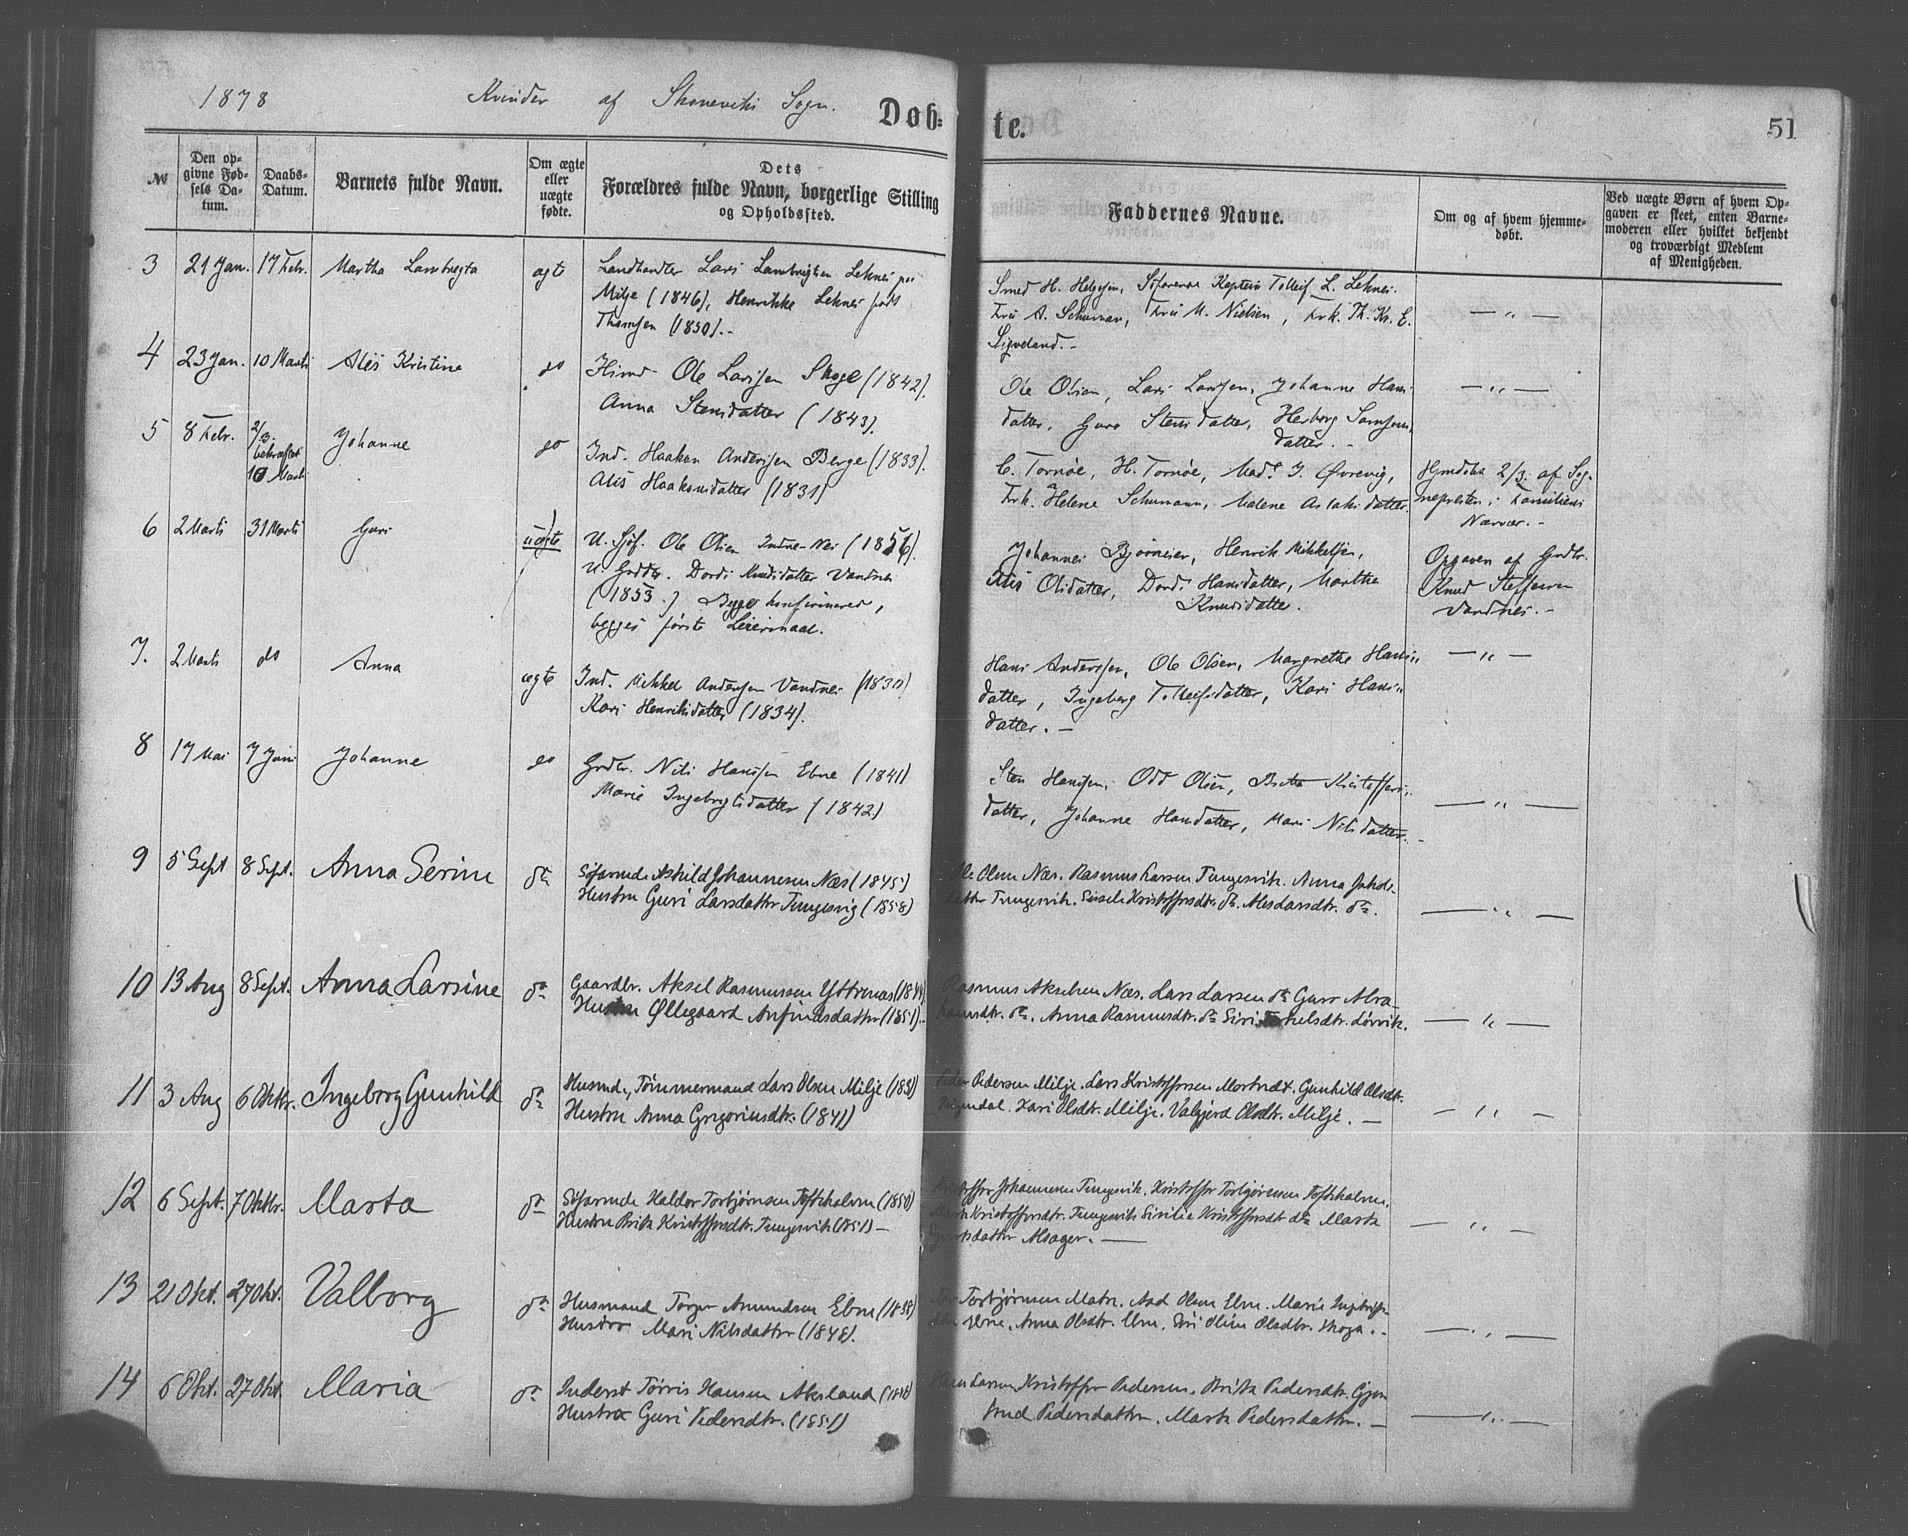 1878 Kvinder af Skoneviks Sogn. Døb-
te. 51
№
Den op-
givne Fød-
sels Da-
tum.
Daabs-
Datum.
Barnets fulde Navn.
Om ægte
eller
uægte
fødte.
Dets
Forældres fulde Navn, borgerlige Stilling
og Opholdssted.
Faddernes Navne.
Om og af hvem hjemme-
døbt.
Ved uægte Børn af hvem Op-
gaven er skeet, enten Barne-
moderen eller hvilket bekjendt
og troværdigt Medlem
af Menigheden.
3 21 Jan. 17 Febr. Martha Lambregta ægt
Landhandler Lars Lambrigtsen Leknes paa
Milje (1846), Henrikke Leknes født
Thomsen (1850).-
Smed H. Helgesen, Søfarende Kaptein Tolleif L. Leknes.
Fru A. Schuman, Fru M. Nielsen, Frk. Th. Kr. E.
Sigveland.-
— " —
4 23 Jan. 10 Marts Alis Kristine do
Ole Larssen Skoge (1842).
Anna Stensdatter (1843).
Ole Olsen, Lars Larssen, Johanne Hans
datter, Guro Stensdatter, Herborg Samsons
datter. -
— " —
5 8 Febr. 2/3. bekræftet 10 Marts Johanne do
Ind. Haakon Anderssen Berge (1833).
Alis Haakonsdatter (1831)
C. Tornøe, H. Tornøe, Mad. J. Øvrevig,
Frk. Helene Schumann, Malene Aslaksdatter.
Hjmdøbt 2/3. af Sog-
nepresten i Familiens
Nærvær. -
6 2 Marts 31 Marts Guri uægte
U. Sjøf. Ole Olsen Indre-Nes (1856).
U. Grddtr. Dordi Knudsdatter Vandnes
(1853.) Begge konfirmered,
begges første Leiermaal.
Johannes Bjørneier, Henrik Mikkelsen,
Alis Olsdatter, Dordi Hansdatter, Martha
Knudsdatter.
Opgaven af Grdbr.
Knud Steffensen
Vandnes. -
7. 2 Marts do Anna ægte
Ind. Mikkel Anderssen Vandnes (1830)
Kari Henriksdatter (1834).
Hans Anderssen, Ole Olsen, Margrethe Hans-
datter, Ingeborg Tolleifsdatter, Kari Hans-
datter. —
— " —
8 17 Mai 7 Juni Johanne do
Grdbr. Nils Hanssen Ebne (1841)
Marie Ingebrgtsdatter (1842)
Sten Hanssen, Odd Olsen, Brita Kristoffers-
datter, Johanne Hansdatter, Mari Nilsdatter. -
— " —
9 5 Sept 8 Sept. Anna Serine do
Søfarende Askild Johannesen Næs (1845)
Hustru Guri Larsdatter Tungesvig (1858)
Ole Olsen Næs. Rasmus Larsen Tungesvik. Anna Jakobs-
datter Tungesvik. Sissele Kristoffersdtr. do. Ales Larsdtr. do.
— " —
10 13 Aug 8 Sept. Anna Larsine do
Gaardbr. Aksel Rasmussen Yttrenæs (1844)
Hustru Øllegaard Anfindsdatter (1851).
Rasmus Akselsen Næs. Lars Larsen do Guro Abra-
hamsdtr. do. Anna Rasmusdtr. do Siri Løvvik.
— " —
11 3 Aug 6 Oktbr. Ingeborg Gunhild do
Husmd, Tømmermand Lars Olsen Milje (1838)
Hustru Anna Grigoriusdtr. (1841)
Peder Pedersen Milje. Lars Kristoffersen Gunhild Olsdtr.
Kari Olsdtr. Milje. Valgjerd Olsdtr. Milje. —
— " —
12 6 Sept. 7 Oktbr. Marta do
Søfarende Haldor Torbjørnsen Toftehalvm (1850)
Hustru Brita Kristoffersdtr. Tungesvik (1851) —
Kristoffer Johannesen Tungesvik. Kristoffer Torbjørnsen Toftehalvm.
Marta Kristoffersdtr. Tungesvik Sirilie Kristoffersdtr do Marta
—
— " —
13 21 Okt. 27 Okt. Valborg do
Husmand Torger Amundsen Ebne (1838)
Hustru Mari Nilsdatter (1848).
Torbjørnsen Aad Olsen Ebne. Marie
Ebne. Anna Olsdtr. Ebne. Olsdtr. Skoga. -
— " —
14 6 Okt. 27 Okt. Maria do
Inderst Tørris Hansen Akeland (1848)
Hustru Guri Pedersdtr. (1851)
Hans Larsen Kristoffer Pedersen. Brita Pedersdtr. Gjer-
trud Pedersdatter. Marta Pedersdatter. —
— " —